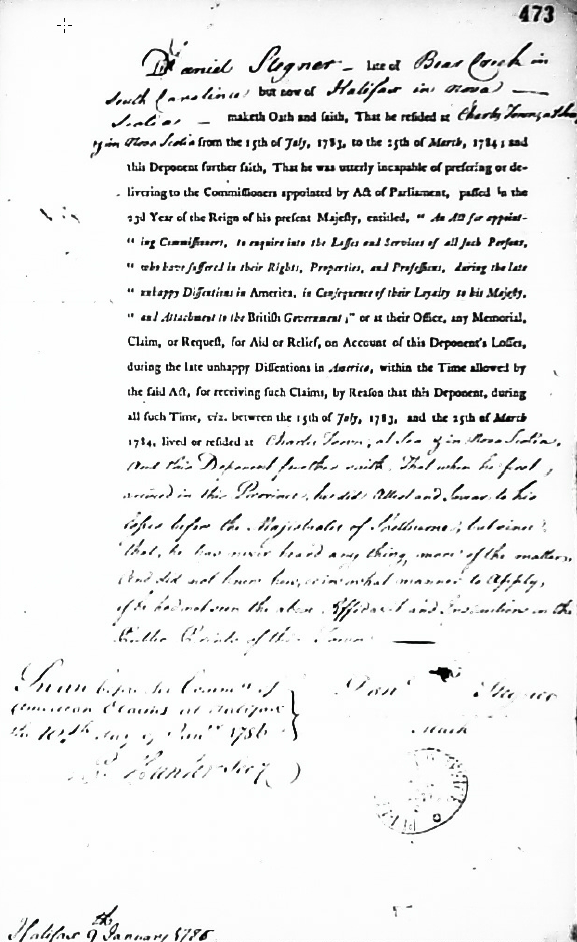 473
Daniel Stegner — late of Bear Creek in
South Carolina but now of Halifax in Nova
Scotia — maketh Oath and saith, That he resided at Charles Town, at Sea
& in Nova Scotia from the 15th of July, 1783, to the 25th of March, 1784; and
this Deponent further saith, That he was utterly incapable of preferring or de-
livering to the Commissioners appointed by Act of Parliament, passed in the
23d Year of the Reign of his present Majesty, entitled, " An Act for appoint-
" ing Commissioners, to enquire into the Losses and Services of all such Persons,
" who have suffered in their Rights, Properties, and Professions, during the late
" unhappy Dissentions in America, in Consequence of their Loyalty to his Majesty,
" and Attachment to the British Government;" or at their Office, any Memorial,
Claim, or Request, for Aid or Relief, on Account of this Deponent's Losses,
during the late unhappy Dissentions in America, within the Time allowed by
the said Act, for receiving such Claims, by Reason that this Deponent, during
all such Time, viz. between the 15th of July, 1783, and the 25th of March
1784, lived or resided at Charles Town, at Sea & in Nova Scotia.
And this Deponent further saith, That when he first
arrived in this Province, he did Attest and Swear to his
losses before the Majestrates of Shelburne, but since
that, he has never heard any thing more of the matter,
And did not know how, or in what manner to Apply,
if he had not seen the above Affidavit and Instructions in the
Public Prints of this Town
Sworn before the Comms. of
American Claims at Halifax
the 10th day of Janry 1786
P. Hunter Secy
Danl Stegner
Mark
Halifax 9th January 1786